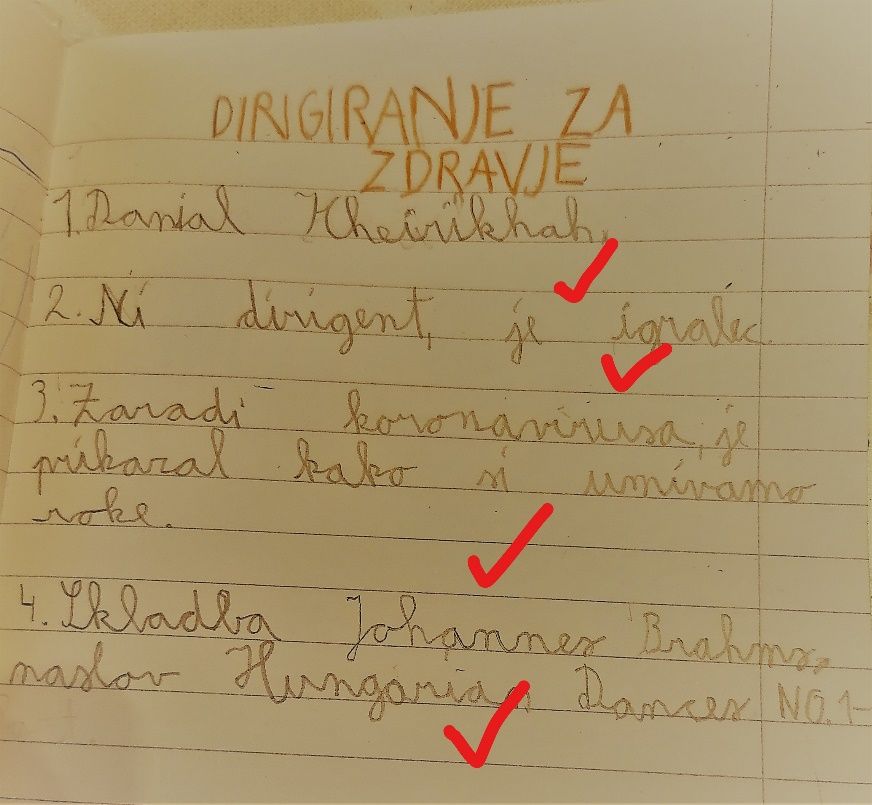 DIRIGIRANJE ZA
ZDRAVJE
1. Danial Kheirikhah,
2. Ni dirigent, je igralec.
3. Zaradi koronavirusa, je
prikazal kako si umivamo
roke.
4. Skladba Johannes Brahms,
naslov Hungarian Dances NO.1-